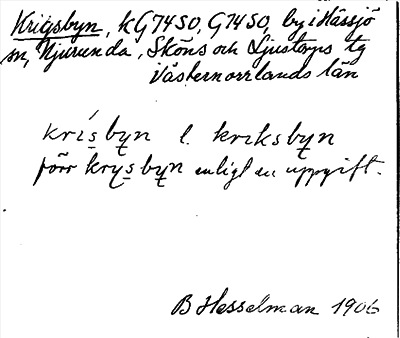 Krigsbyn, kG74SO, G74SO, by i Hässjö
sn, Njurunda, Sköns och Ljustorps tg
Västernorrlands län
krísbyn l. kriksbyn
förr krysbyn enligt en uppgift.
B Hesselman 1906